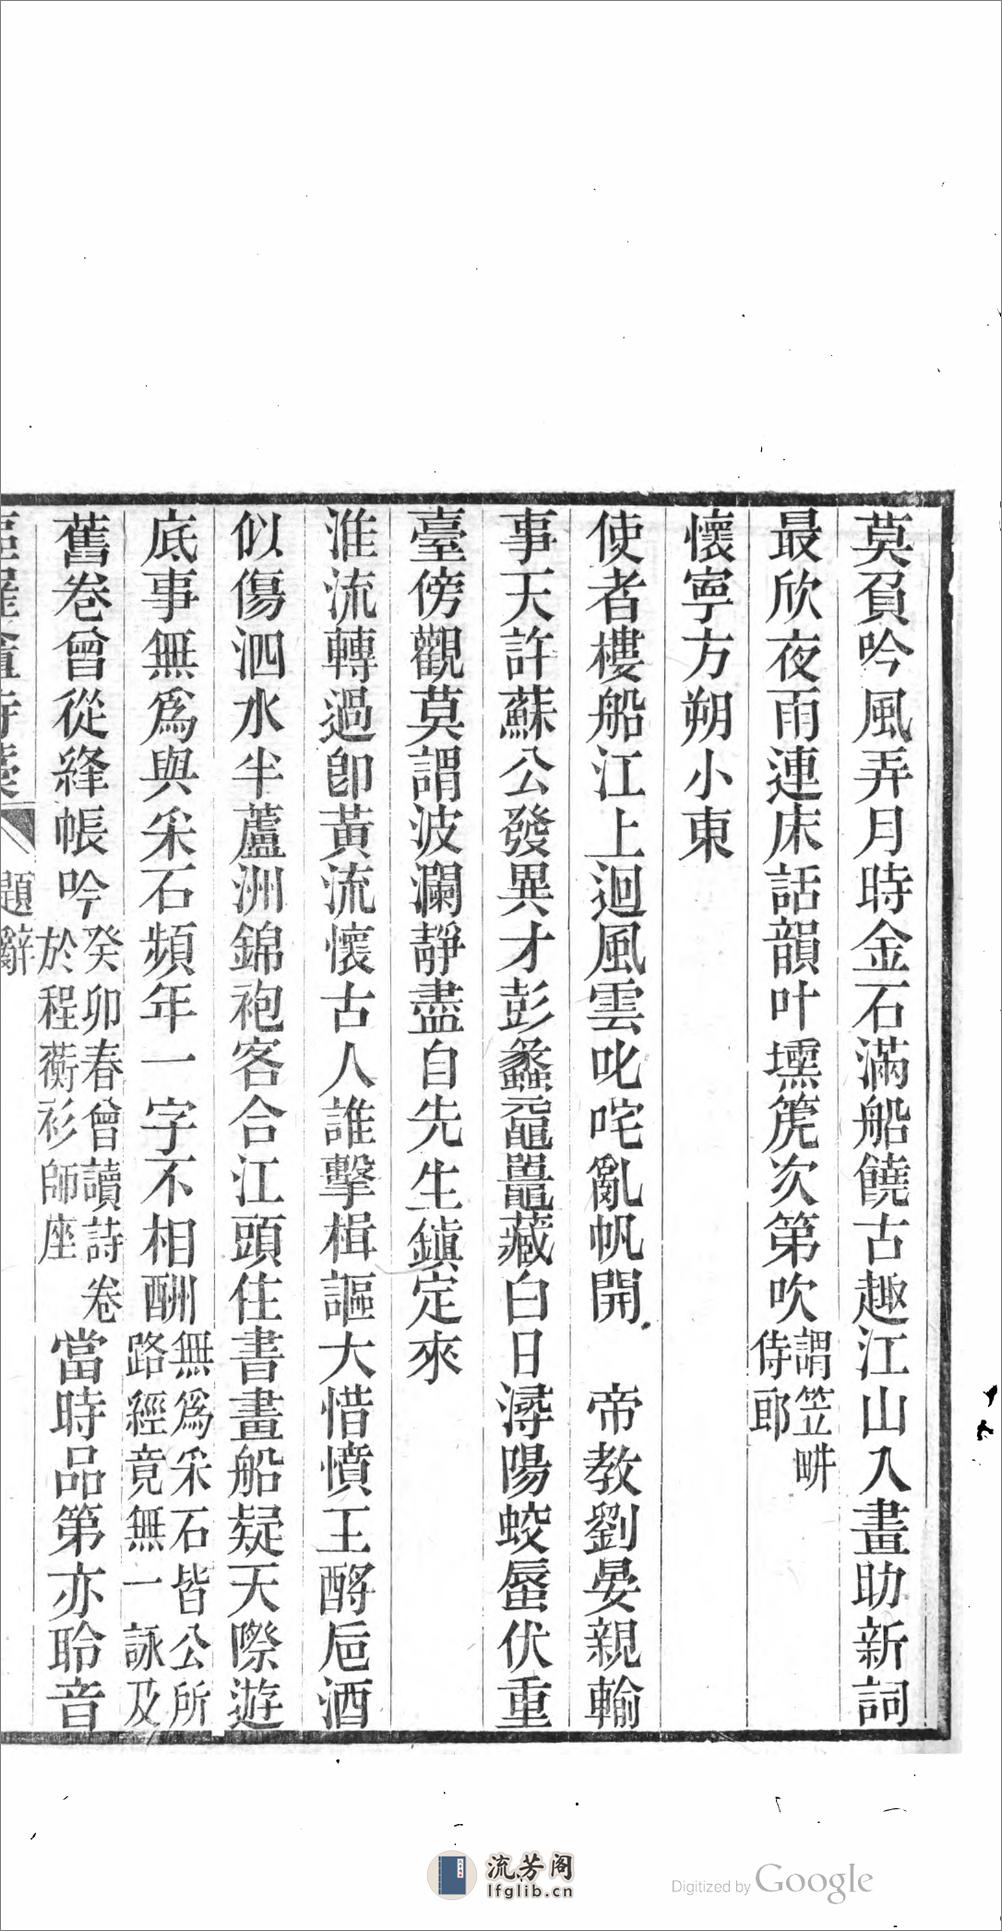 莫負吟風弄月時金石滿船饒古趣江山入畫助新詞
最欣夜雨連床話韻叶壎箎次第吹謂笠畊侍郎
懷寧方朔小東
使者樓船江上迴風雲叱咤亂帆開　帝教劉晏親輸
事天許蘇公發異才彭蠡黿鼉藏白日潯陽蛟蜃伏重
臺傍觀莫謂波瀾靜盡自先生鎮定來
淮流轉過卽黃流懷古人誰擊楫謳大惜憤王酹巵酒
似傷泗水半蘆洲錦袍客合江頭住書畫船疑天際遊
底事無爲與采石頻年一字不相酬無爲采石皆公所路經竟無一詠及
舊卷曾從絳帳吟癸卯春曾讀詩卷於程蘅衫師座當時品第亦聆音
題辭
流芳阁
lfglib.cn
Digitized by Google